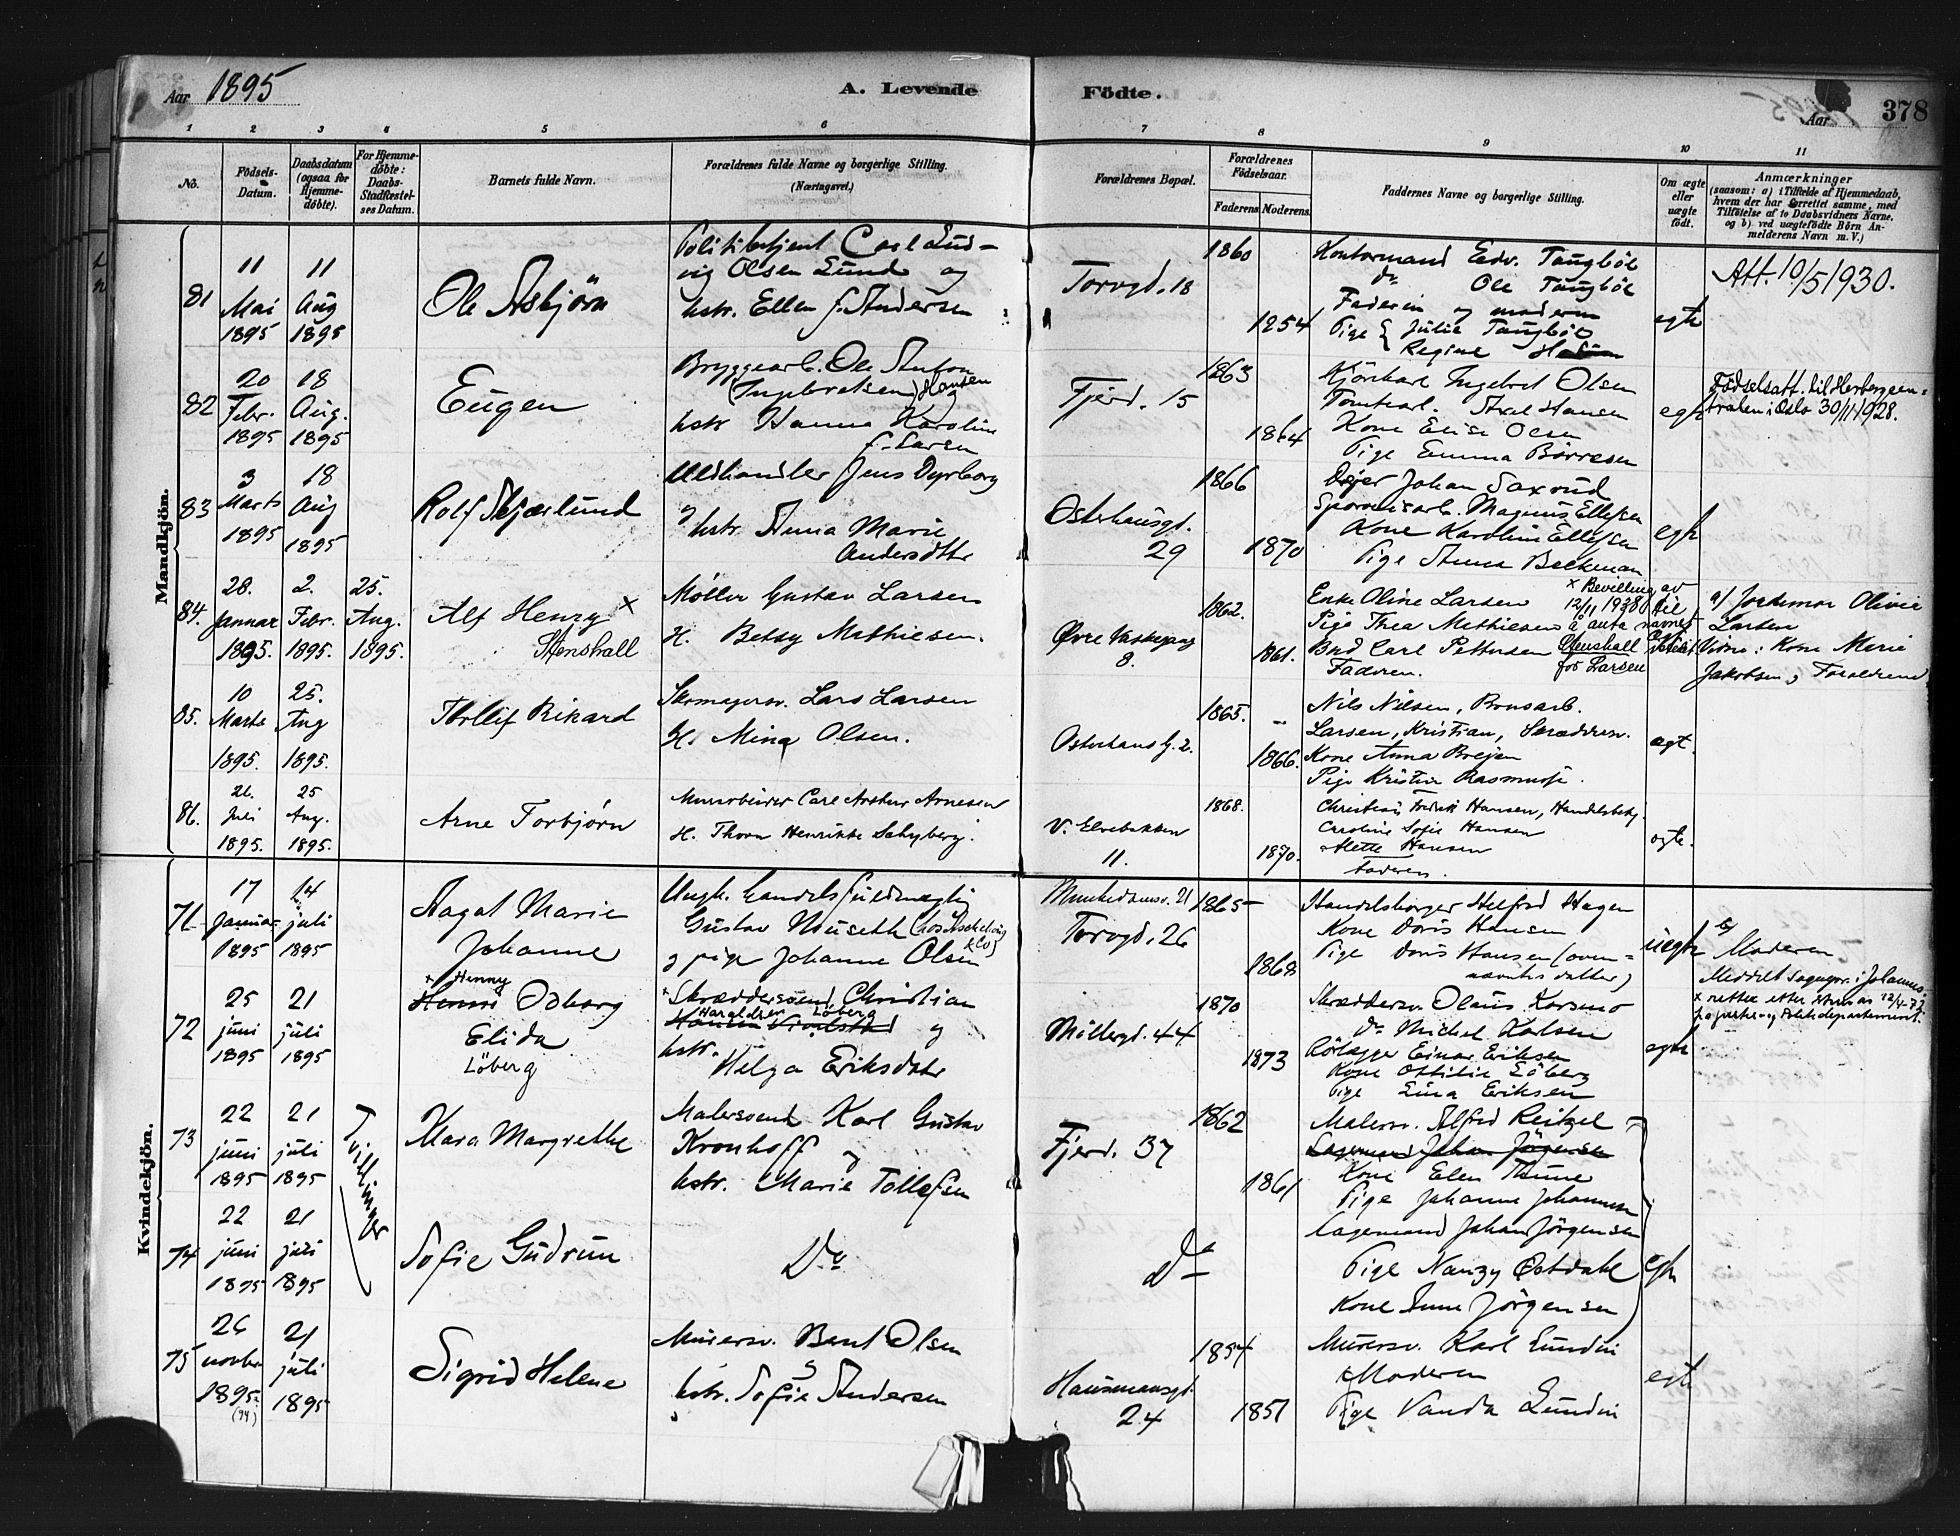 Aar 1895
A. Levende
Födte.
Aar
378
1 2 3 4 5 6 7 8 9 10 11
No.
Födsels-
Datum.
Daabsdatum
(ogsaa for
Hjemme-
döbte).
For Hjemme-
döbte:
Daabs-
Stadfæstel-
ses Datum.
Barnets fulde Navn.
Forældrenes fulde Navne og borgerlige Stilling.
(Næringsvei.)
Forældrenes Bopæl.
Forældrenes
Födselsaar.
Faderens.
Moderens.
Faddernes Navne og borgerlige Stilling.
Om ægte
eller
uægte
födt.
Anmærkninger
(saasom: a) i Tilfælde af Hjemmedaab,
hvem der har forrettet samme, med
Tilföielse af to Daabsvidners Navne,
og b) ved uægtefödte Börn An-
melderens Navn m. V.)
Mandkjön.
81
11
Mai
1895
11
Aug
1895
Ole Asbjörn
Politibetjent Carl Lud-
vig Olsen Lund og
hstr. Ellen f. Andersen
Torvgd. 18
1860
1854
Kontormand Edv. Taugböl
do Ole Taugböl
Faderen og moderen
Pige { Julie Taugböl
Regine
egte
Att. 10/5 1930.
82
20
Febr.
1895
18
Aug.
1895
Eugen
Bryggearb. Ole Anton
(Ingebretsen) Hansen
og
hstr Hanna Karoline
f. Larsen
Fjerd. 15
1863
1864
Kjörekarl Ingebret Olsen
Tomtearb. Axel Hansen
Kone Elise Olsen
Pige Emma Börresen
egte
Födselsatt. til Herbergcen-
tralen i Oslo 30/11 1928.
83
3
Marts
1895
18
Aug
1895
Rolf Skjærlund
Uldhandler Jens Dyrborg
og
hstr. Anna Marie
Andersdttr
Osterhausgd.
29
1866
1870
Dreier Johan Saxrud
Sporveisarb. Magnus Ellefsen
Kone Karoline Ellefsen
Pige Anna Beckman
egte
84.
28.
Januar
1895.
2.
Febr.
1895.
25.
Aug.
1895.
Alf Henry x
Stenshall
Møller Gustav Larsen
H. Betsy Mathiesen.
Øvre Vaskegang
8.
1862.
1861.
Enke Oline Larsen
Pige Thea Mathiesen
Bud Carl Pettersen
Faderen.
x Bevilling av
12/11 1938 til
å anta navnet
Stenshall
for Larsen
a/ Jordemor Olivie
Larsen
Vidne: Kone Marie
Jakobsen, Forældrene
85.
10
Marts
1895.
25.
Aug
1895.
Thollif Rikard
Skomagersv. Lars Larsen
H. Mina Olsen.
Osterhausg. 2.
1865.
1866.
Nils Nilsen, Brusarb.
Larsen, Kristian, Skræddersv.
Kone Anna Breien
Pige Kristine Rasmussen.
ægt.
86.
21.
Juli
1895.
25
Aug.
1895.
Arne Torbjørn
Murarbeider Carl Arthur Arnesen
H. Thora Henrikke Schyberg.
V. Elvebakken
11.
1868.
1870.
Christian Fredrik Hansen, Handelsbetj.
Caroline Sofie Hansen
Alette Hansen
Faderen.
ægte.
Kvindekjön.
71
17
Januar
1895
14
juli
1895
Aagot Marie
Johanne
Ungk. handelsfuldmægtig
Gustav Museth
og pige Johanne Olsen
Munkedamsv. 21
Torvgd. 26
1865
1868
Handelsborger Helfred Hagen
Kone Doris Hansen
Pige Doris Hansen (oven-
nævntes datter)
uegte
b/
Moderen
72
25
juni
1895
21
juli
1895
x Henny
Henni Odborg
Elida
Löberg
x Skræddersvend Christian
Haraldsen Löberg
og
hstr.
Helga Eriksdatr
Möllergd. 44
1870
1873
Skræddersv. Olaus Korsmo
do Michel Karlsen
Rörlægger Einar Eriksen
Kone Ottilie Löberg
Pige Lina Eriksen
egte
73
22
juni
1895
21
juli
1895
Tvillinger
Mara Margrethe
Malersvend Karl Gustav
Kronhoff og
hstr. Marie Tollefsen
Fjerd. 37
1862
1861
Malersv. Alfred Reitzel
Lagermand Johan Jörgensen
Kone Elen Thune
Pige Johanne Johannesen
74
22
juni
1895
21
juli
1895
Sofie Gudrun
Do
Do
Lagermand Johan Jörgensen
Pige Nanzy Östdahl
Kone Anne Jörgensen
egte
75
26
novbr
1895
(94)
21
juli
1895
Sigrid Helene
Murersv. Bent Olsen
og
hstr. Sofie Andersen
Hausmannsgd.
24
1854
1851
Murersv. Karl Lundin
Moderen
Pige Vanda Lundin
egte